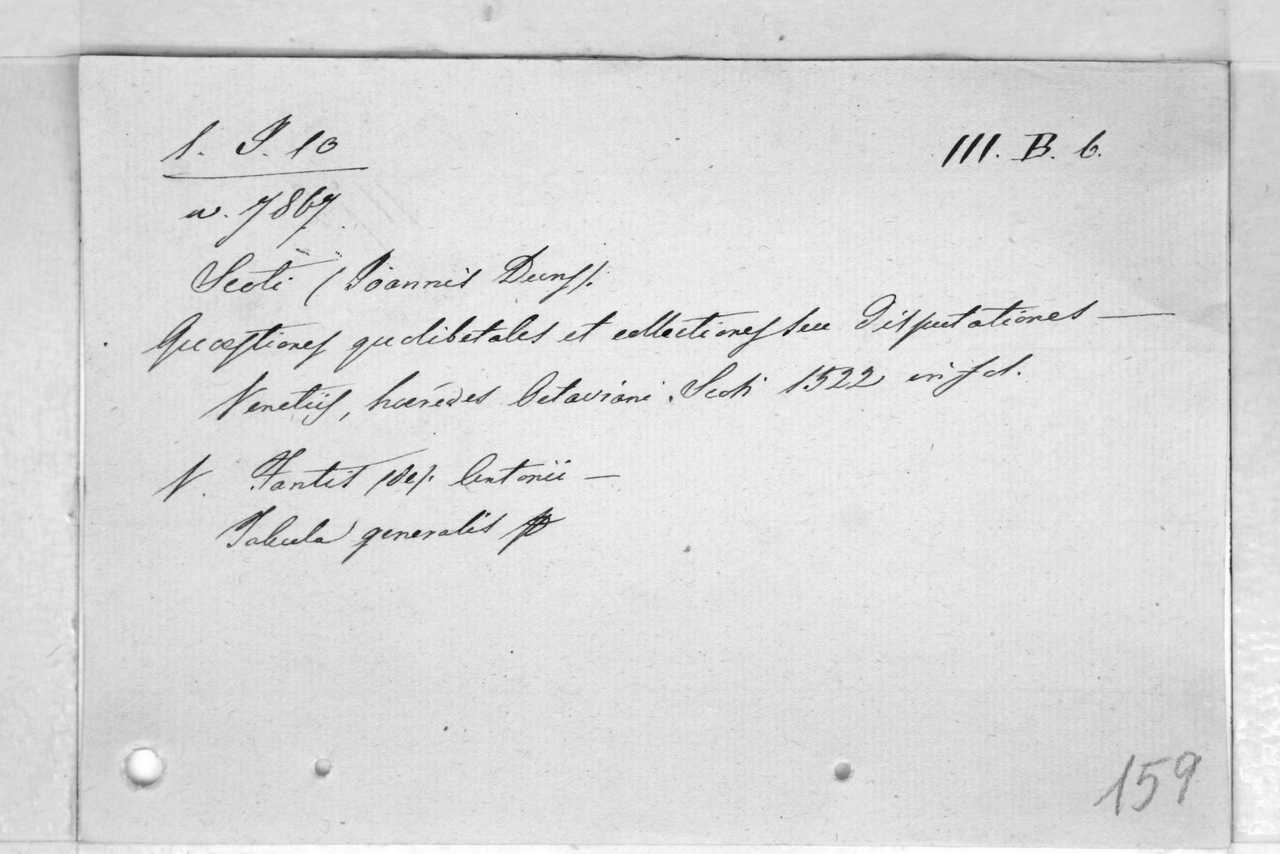 1. P. 10
III. B. 6.
n. 7867.
Scoti (Joannis Duns).
Quæstiones quolibetales et collectiones seu Disputationes —
Venetiis, hæredes Octaviani Scoti 1522 in fol.
V. Fantis (de). Antonii —
Tabula generalis
159